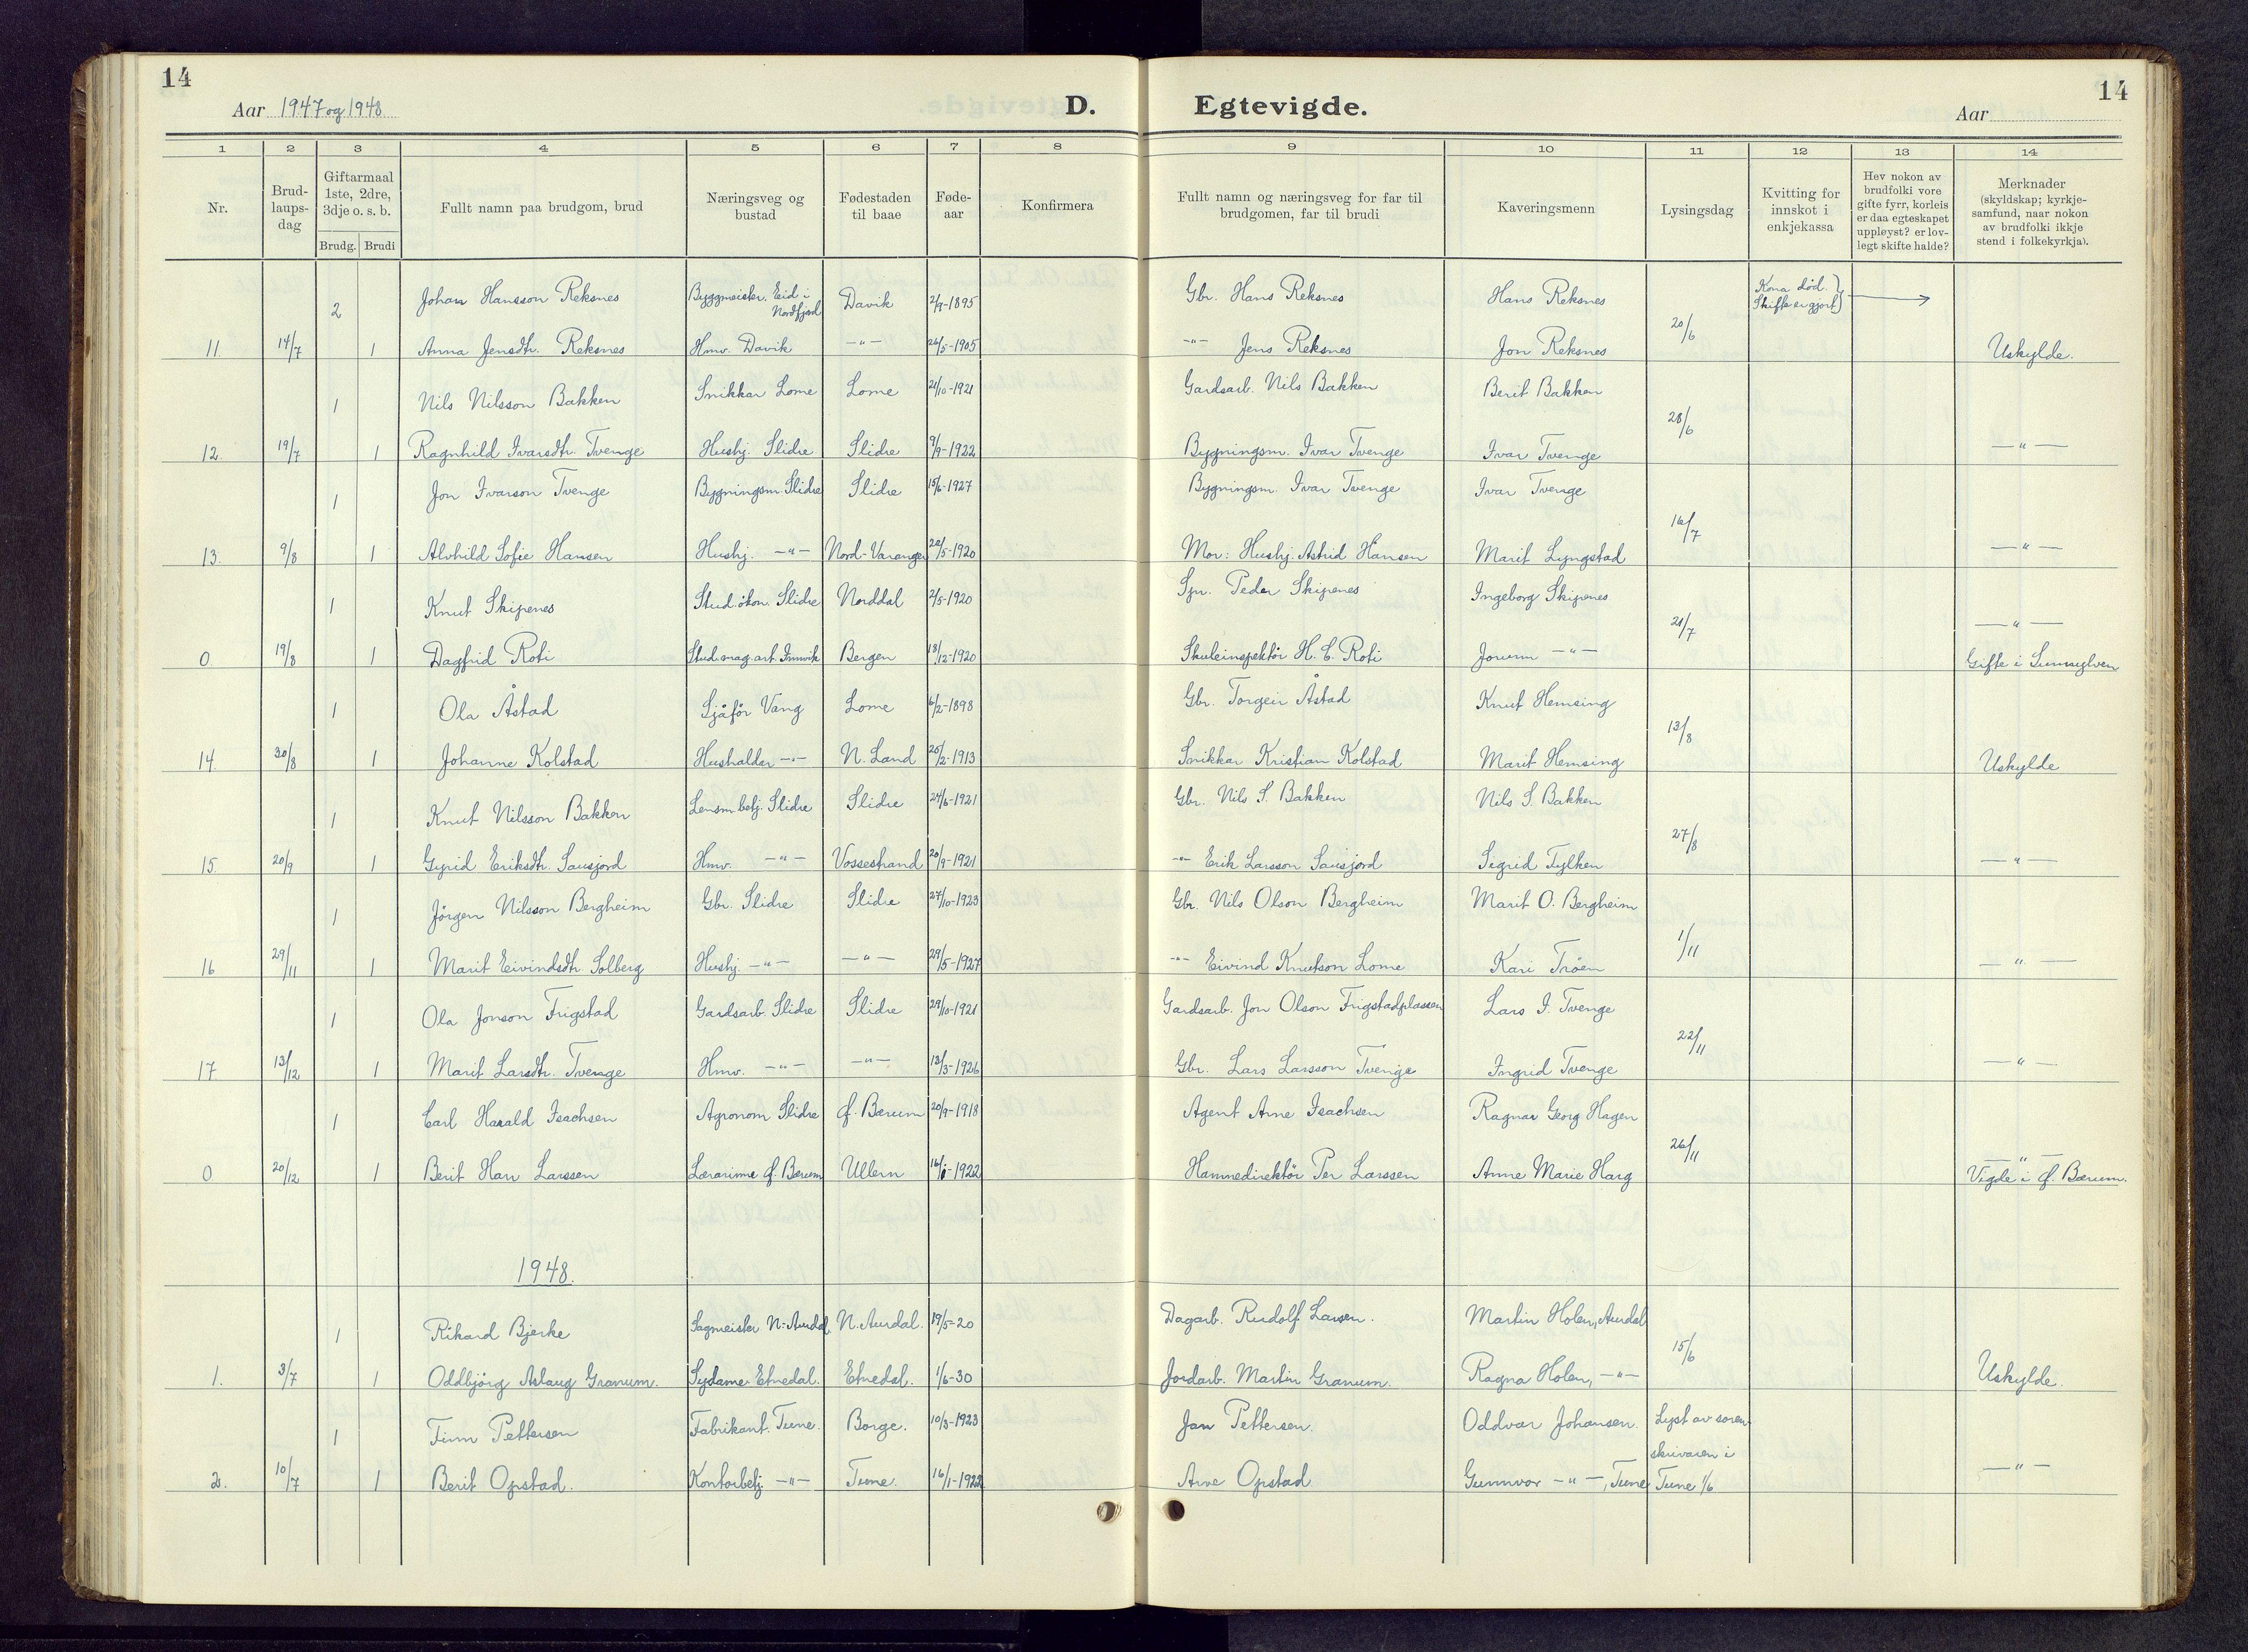 14
Aar 1947 og 1948
D.
Egtevigde.
Aar
14
1 2 3 4 5 6 7 8 9 10 11 12 13 14
Nr.
Brud-laups-dag
Giftarmaal 1ste, 2dre, 3dje o. s. b.
Brudg. Brudi
Fullt namn paa brudgom, brud
Næringsveg og bustad
Fødestaden til baae
Føde-aar
Konfirmera
Fullt namn og næringsveg for far til brudgomen, far til brudi
Kaveringsmenn
Lysingsdag
Kvitting for innskot i enkjekassa
Hev nokon av brudfolki vore gifte fyrr, korleis er daa egteskapet uppløyst? er lov-legt skifte halde?
Merknader (skyldskap; kyrkje-samfund, naar nokon av brudfolki ikkje stend i folkekyrkja).
2 Johan Hansson Reksnes Byggmeister. Eid i Nordfjord Davik 2/9-1895 Gbr. Hans Reksnes Hans Reksnes Kona död. Skifte er gjort
11. 14/7 1 Anna Jensdtr. Reksnes Hmv. Davik -"- 26/5-1905 -"- Jens Reksnes Jon Reksnes 20/6 Uskylde.
1 Nils Nilsson Bakken Snikkar Lome Lome 21/10-1921 Gardsarb. Nils Bakken Berit Bakken
12. 19/7 1 Ragnhild Ivarsdtr. Tvenge Hushj. Slidre Slidre 9/9-1922 Bygningsm. Ivar Tvenge Ivar Tvenge 28/6 -"-
1 Jon Ivarson Tvenge Bygningsm. Slidre Slidre 15/6-1927 Bygningsm. Ivar Tvenge Ivar Tvenge
13. 9/8 1 Alvhild Sofie Hansen Hushj. -"- Nord-Varanger 22/5-1920 Mor: Hushj. Astrid Hansen Marit Lyngstad 16/7 -"-
1 Knut Skipenes Stud. ökon. Slidre Norddal 2/5-1920 Spr. Peder Skipenes Ingeborg Skipenes
0 19/8 1 Dagfrid Roti Stud. mag. art. Innvik Bergen 18/12-1920 Skuleinspektör H. C. Roti Jorunn -"- 21/7 -"- Gifte i Sunnylven
1 Ola Åstad Sjåför Vang Lome 6/2-1898 Gbr. Torgeir Åstad Knut Hemsing
14. 30/8 1 Johanne Kolstad Hushaldar -"- N. Land 20/2-1913 Snikkar Kristian Kolstad Marit Hemsing 13/8 Uskylde
1 Knut Nilsson Bakken Lensm. betj. Slidre Slidre 24/6-1921 Gbr. Nils S. Bakken Nils S. Bakken
15. 20/9 1 Gyrid Eriksdtr. Sausjord Hmv. -"- Vossestrand 20/9-1921 -"- Erik Larsson Sausjord Sigrid Tylken 27/8 -"-
1 Jörgen Nilsson Bergheim Gbr. Slidre Slidre 27/10-1923 Gbr. Nils Olson Bergheim Marit O. Bergheim
16 29/11 1 Marit Eivindsdtr. Solberg Hushj. -"- -"- 29/5-1927 -"- Eivind Knutson Lome Kari Tröen 1/11 -"-
1 Ola Jonson Frigstad Gardsarb. Slidre Slidre 29/10-1921 Gardsarb. Jon Olson Frigstadplassen Lars I. Tvenge
17 13/12 1 Marit Larsdtr. Tvenge Hmv. -"- -"- 13/3-1926 Gbr. Lars Larsson Tvenge Ingrid Tvenge 22/11 -"-
1 Carl Harald Isachsen Agronom Slidre Ø. Bærum 20/9-1918 Agent Arne Isachsen Ragnar Georg Hagen
0 20/12 1 Berit Harr Larssen Lærarinne Ø. Bærum Ullern -1922 Hamnedirektör Per Larssen Anne Marie Harg 26/11 -"- Vigde i Ø. Bærum.
1948.
1 Rikard Bjerke Sagmeister N.-Aurdal. N. Aurdal. 19/5-20 Dagarb. Rudolf Larsen. Martin Holen, Aurdal
1. 3/7 1 Oddbjörg Aslaug Granum. Sydame Etnedal. Etnedal. 1/6-30 Jordarb. Martin Granum. Ragna Holen, -"- 15/6 Uskylde.
1 Finn Pettersen Fabrikant. Tune. Borge. 10/3-1923 Jan Pettersen. Oddvar Johansen. Lyst av soren-
skrivaren i
2. 10/7 1 Berit Opstad. Kontorbetj. -"- Tune. 16/1-1922 Arve Opstad Gunnvor -"-, Tune Tune 1/6 -"-